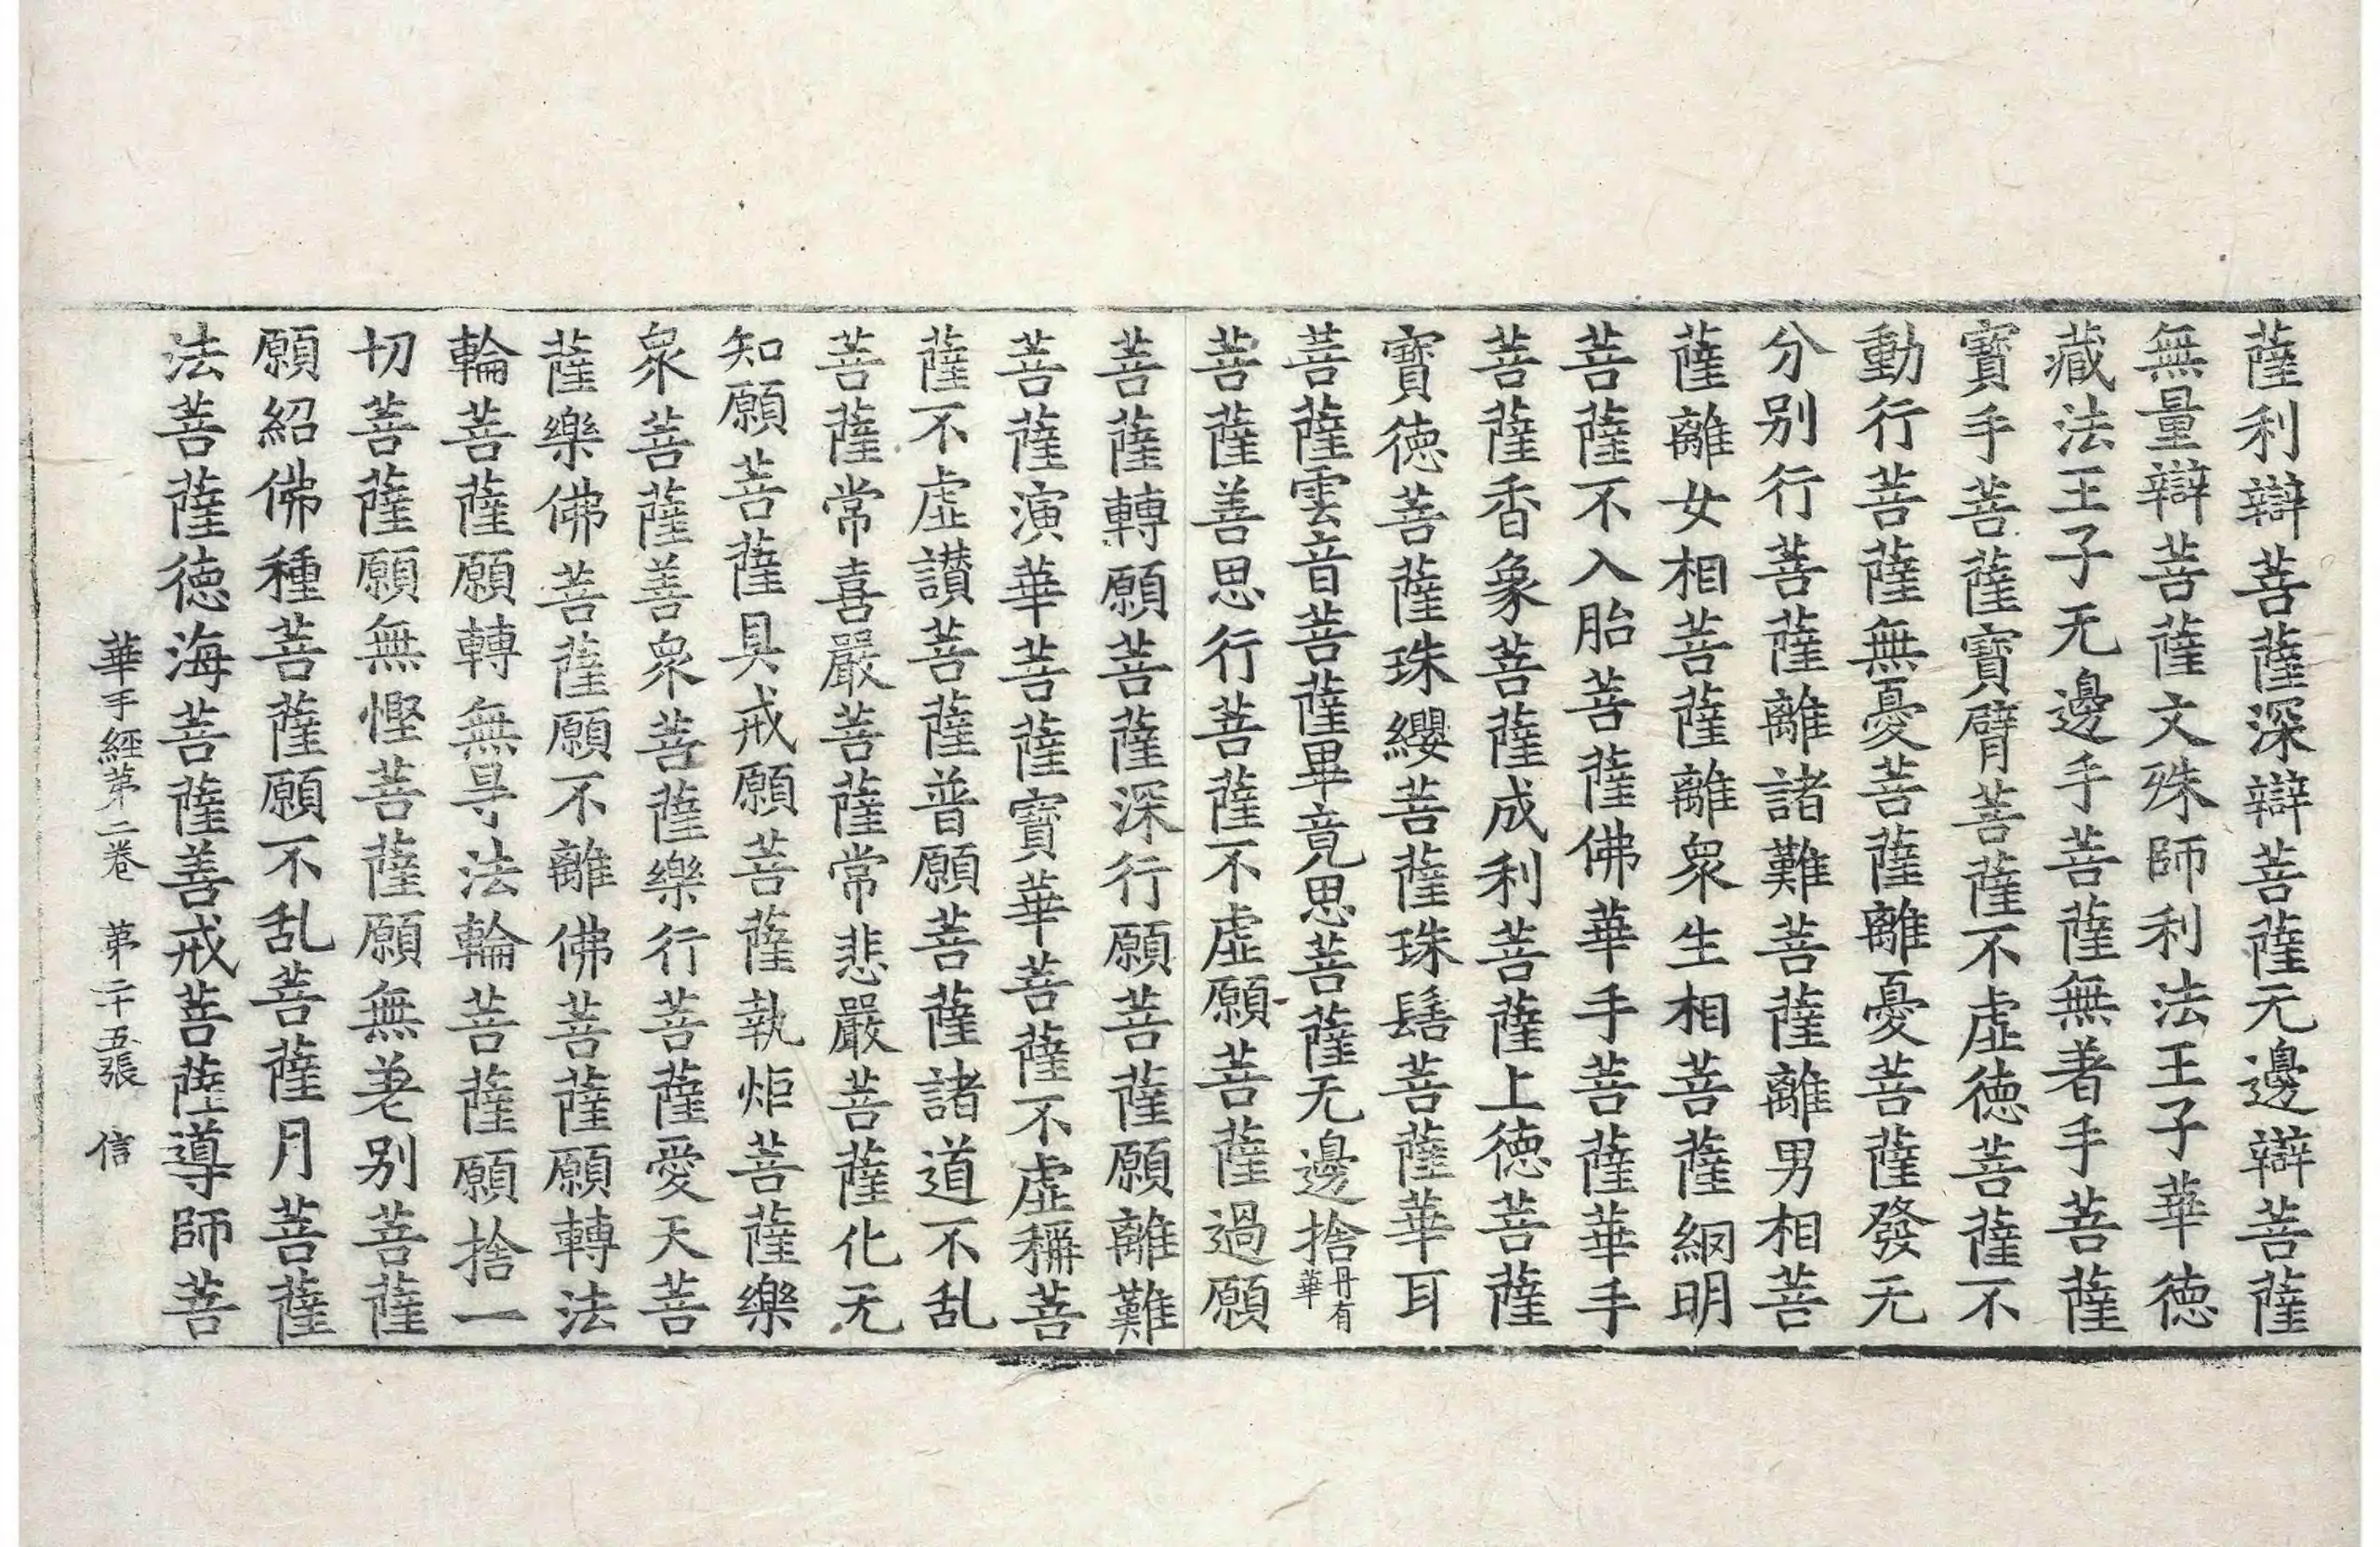 薩利辯菩薩深辯菩薩无邊辯菩薩
無量辯菩薩文殊師利法王子華德
藏法王子无邊手菩薩無著手菩薩
寶手菩薩寶臂菩薩不虛德菩薩不
動行菩薩無憂菩薩離憂菩薩發无
分别行菩薩離諸難菩薩離男相菩
薩離女相菩薩離衆生相菩薩網明
菩薩不入胎菩薩佛華手菩薩華手
菩薩香象菩薩成利菩薩上德菩薩
寶德菩薩珠纓菩薩珠髻菩薩華耳
菩薩雲音菩薩畢竟思菩薩无邊捨丹有華
菩薩善思行菩薩不虛願菩薩過願
菩薩轉願菩薩深行願菩薩願離難
菩薩演華菩薩寶華菩薩不虛稱菩
薩不虛讃菩薩普願菩薩諸道不乱
菩薩常喜嚴菩薩常悲嚴菩薩化无
知願菩薩具戒願菩薩執炬菩薩樂
衆菩薩善衆菩薩樂行菩薩愛天菩
薩樂佛菩薩願不離佛菩薩願轉法
輪菩薩願轉無㝵法輪菩薩願捨一
切菩薩願無慳菩薩願無差别菩薩
願紹佛種菩薩願不乱菩薩月菩薩
法菩薩德海菩薩善戒菩薩導師菩
華手經第二卷 第二十五張 信